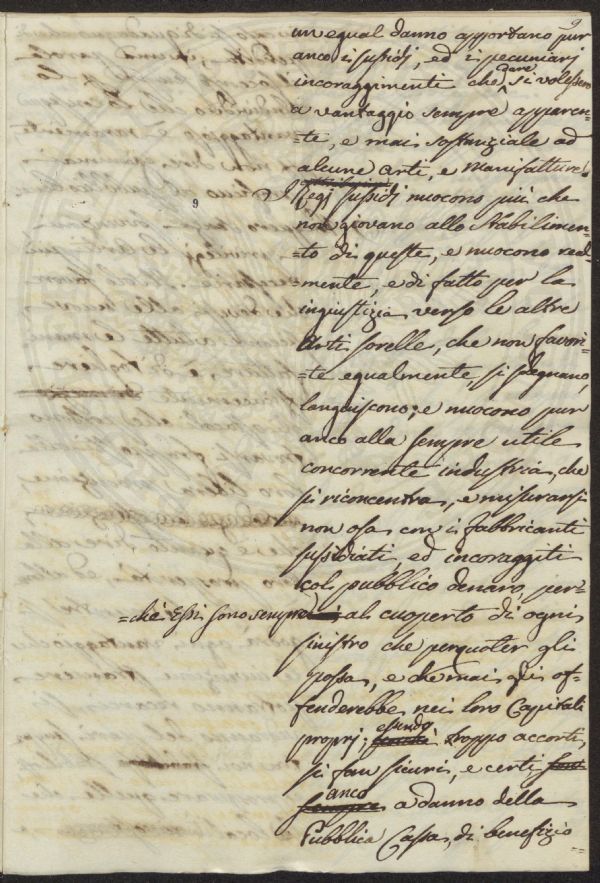 9
un equal danno apportano pur
anco i sussidj, ed i pecuniarj
incoraggimenti che dare si volessero
a vantaggio sempre apparen-
=te, e mai sostanziale ad
alcune arti, e Manifatture.
9
I Regj sussidj nuocono più che
non giovano allo stabilimen-
=to di queste, e nuocono real-
=mente, e di fatto per la
ingiustizia verso le altre
Arti sorelle, che non favori-
=te egualmente, si sdegnano,
languiscono; e nuocono pur
anco alla sempre utile
concorrente industria, che
si riconcentra, e misurarsi
non osa con i fabbricanti
sussidiati, ed incoraggiti
col pubblico denaro, per-
=chè Essi sono sempre al cuoperto di ogni
sinistro che perquoter gli
possa, e che mai gli of-
fenderebbe nei loro Capitali
proprj; essendo troppo accorti,
si fan sicuri, e certi
anco a danno della
Pubblica Cassa, di benefizio